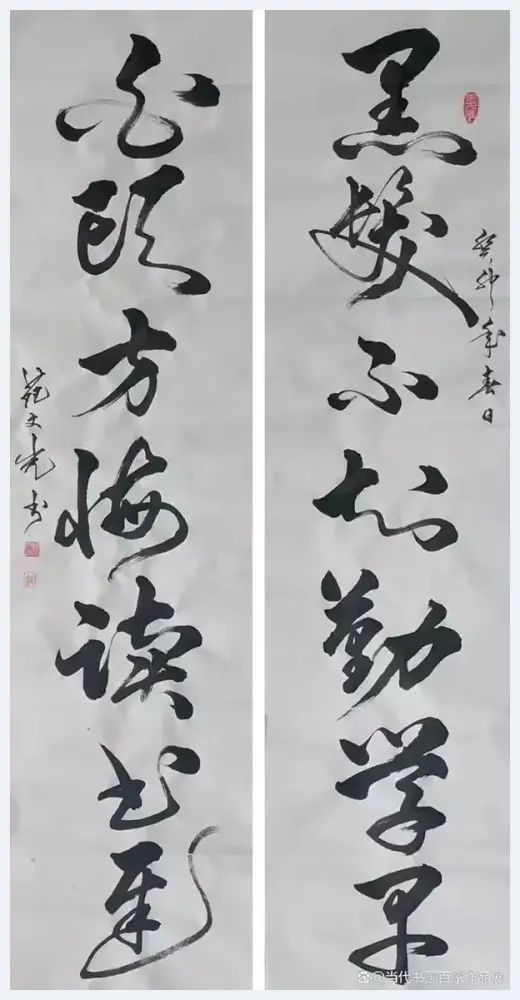 黑髮不知勤学早
癸卯年春日
白頭方悔读书遲
范文光书
当代书画百家作品展